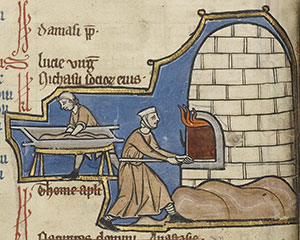 damasi p̄p.
lucie uirḡ
Nichasii socioꝝ eius.
thome apl̄i
domini Anastasie